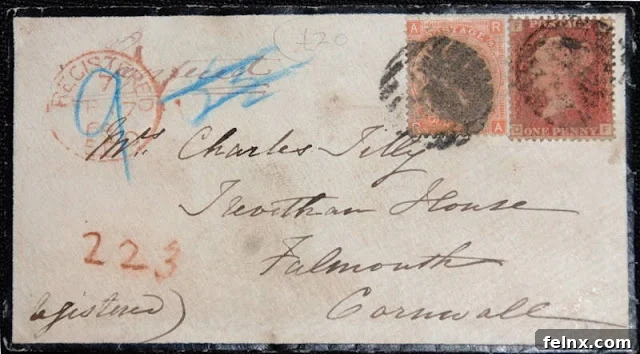 £20
Registered
REGISTERED
7
9
A R
POSTAGE
R A
ONE PENNY
Mrs Charles Tilly
Trevithan House
Falmouth
Cornwall
223
Registered)
felnx.com